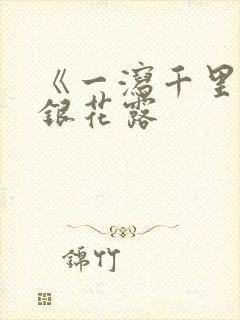 《一瀉千里
銀花露
錦竹